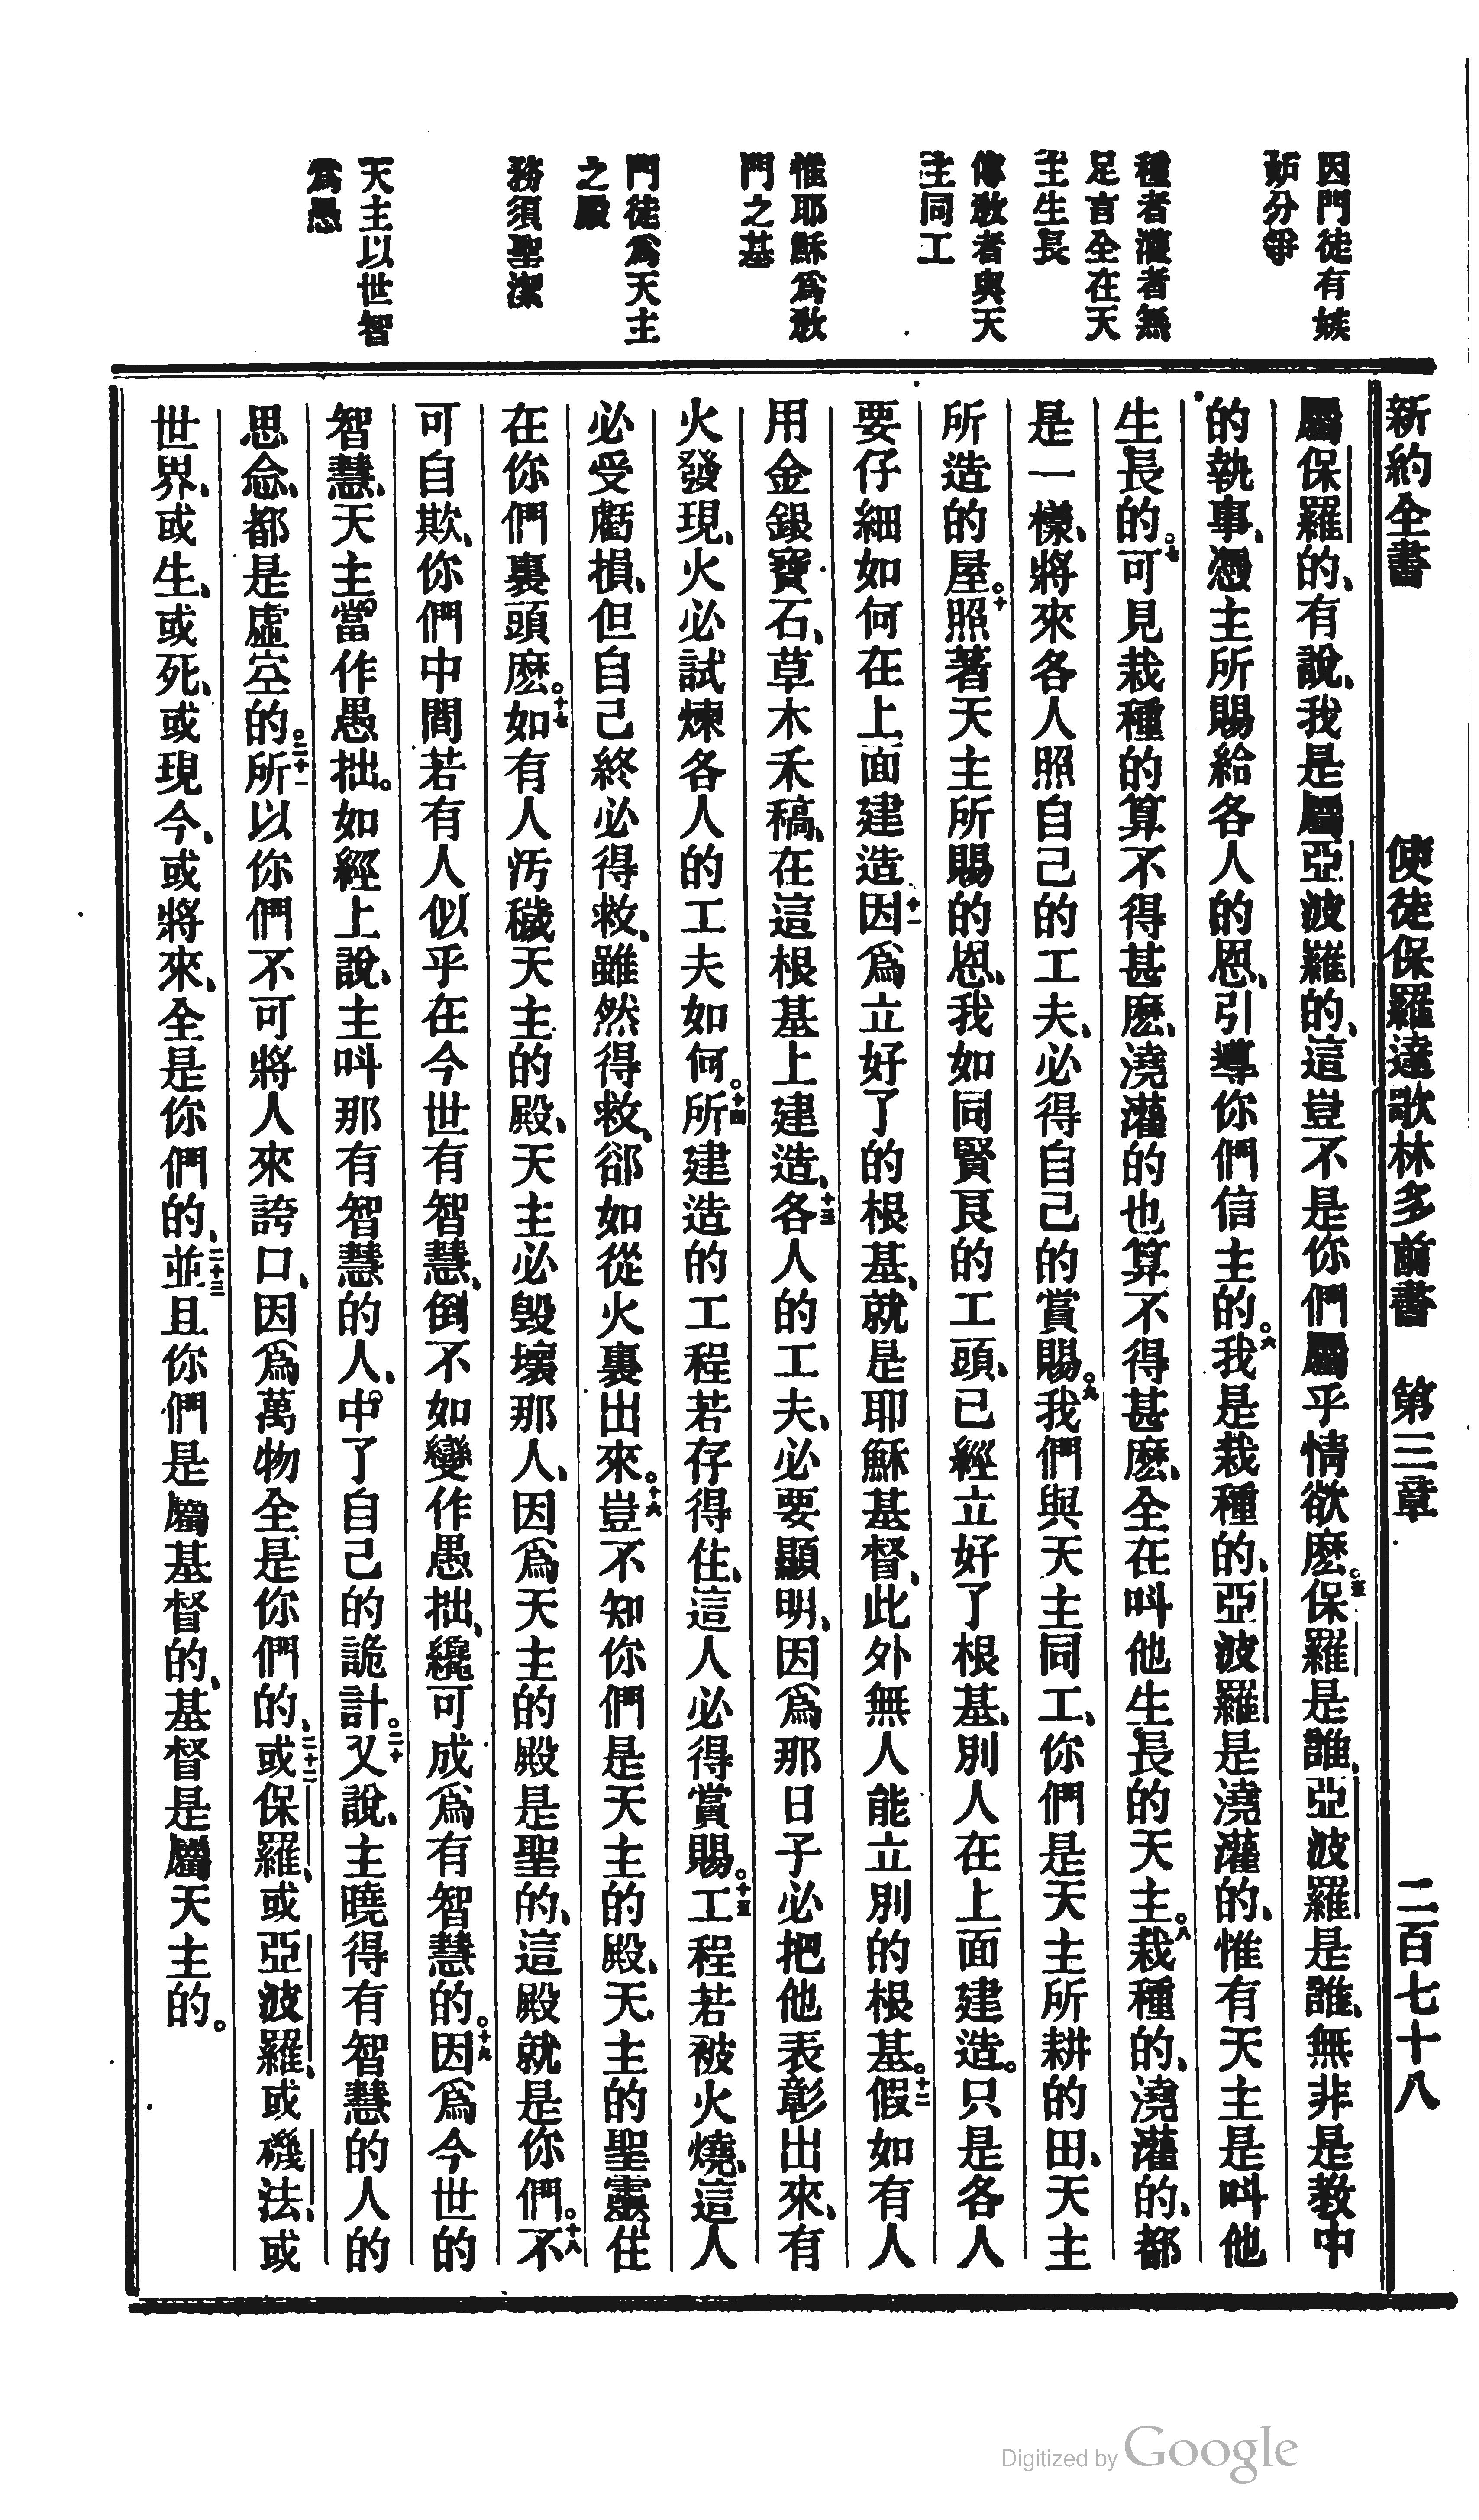 新約全書 使徒保羅達歌林多前書 第三章 二百七十八
因門徒有嫉
妒分爭
種者灌者無
足言全在天
主生長
傳敎者與天
主同工
惟耶穌爲敎
門之基
門徒爲天主
之殿
務須聖潔
天主以世智
爲愚
屬保羅的、有說、我是屬亞波羅的、這豈不是你們屬乎情欲麽。五保羅是誰、亞波羅是誰、無非是敎中
的執事、憑主所賜給各人的恩、引導你們信主的。六我是栽種的、亞波羅是澆灌的、惟有天主是叫他
生長的。七可見栽種的算不得甚麽、澆灌的也算不得甚麽、全在叫他生長的天主。八栽種的、澆灌的、都
是一樣、將來各人照自己的工夫、必得自己的賞賜。九我們與天主同工、你們是天主所耕的田、天主
所造的屋。十照著天主所賜的恩、我如同賢良的工頭、已經立好了根基、別人在上面建造。只是各人
要仔細如何在上面建造十一因爲立好了的根基、就是耶穌基督、此外無人能立別的根基。十二假如有人
用金銀寶石、草木禾稿、在這根基上建造、十三各人的工夫、必要顯明、因爲那日子必把他表彰出來、有
火發現、火必試煉各人的工夫如何。十四所建造的工程若存得住、這人必得賞賜。十五工程若被火燒、這人
必受虧損、但自己終必得救、雖然得救、卻如從火裏出來。十六豈不知你們是天主的殿、天主的聖靈住
在你們裏頭麽。十七如有人汚穢天主的殿、天主必毀壞那人、因爲天主的殿是聖的、這殿就是你們。十八不
可自欺、你們中間若有人似乎在今世有智慧、倒不如變作愚拙、纔可成爲有智慧的。十九因爲今世的
智慧、天主當作愚拙。如經上說、主叫那有智慧的人、中了自己的詭計。二十又說、主曉得有智慧的人的
思念、都是虛空的。二十一所以你們不可將人來誇口、因爲萬物全是你們的、二十二或保羅、或亞波羅、或磯法、或
世界、或生、或死、或現今、或將來、全是你們的、二十三並且你們是屬基督的、基督是屬天主的。
Digitized by Google